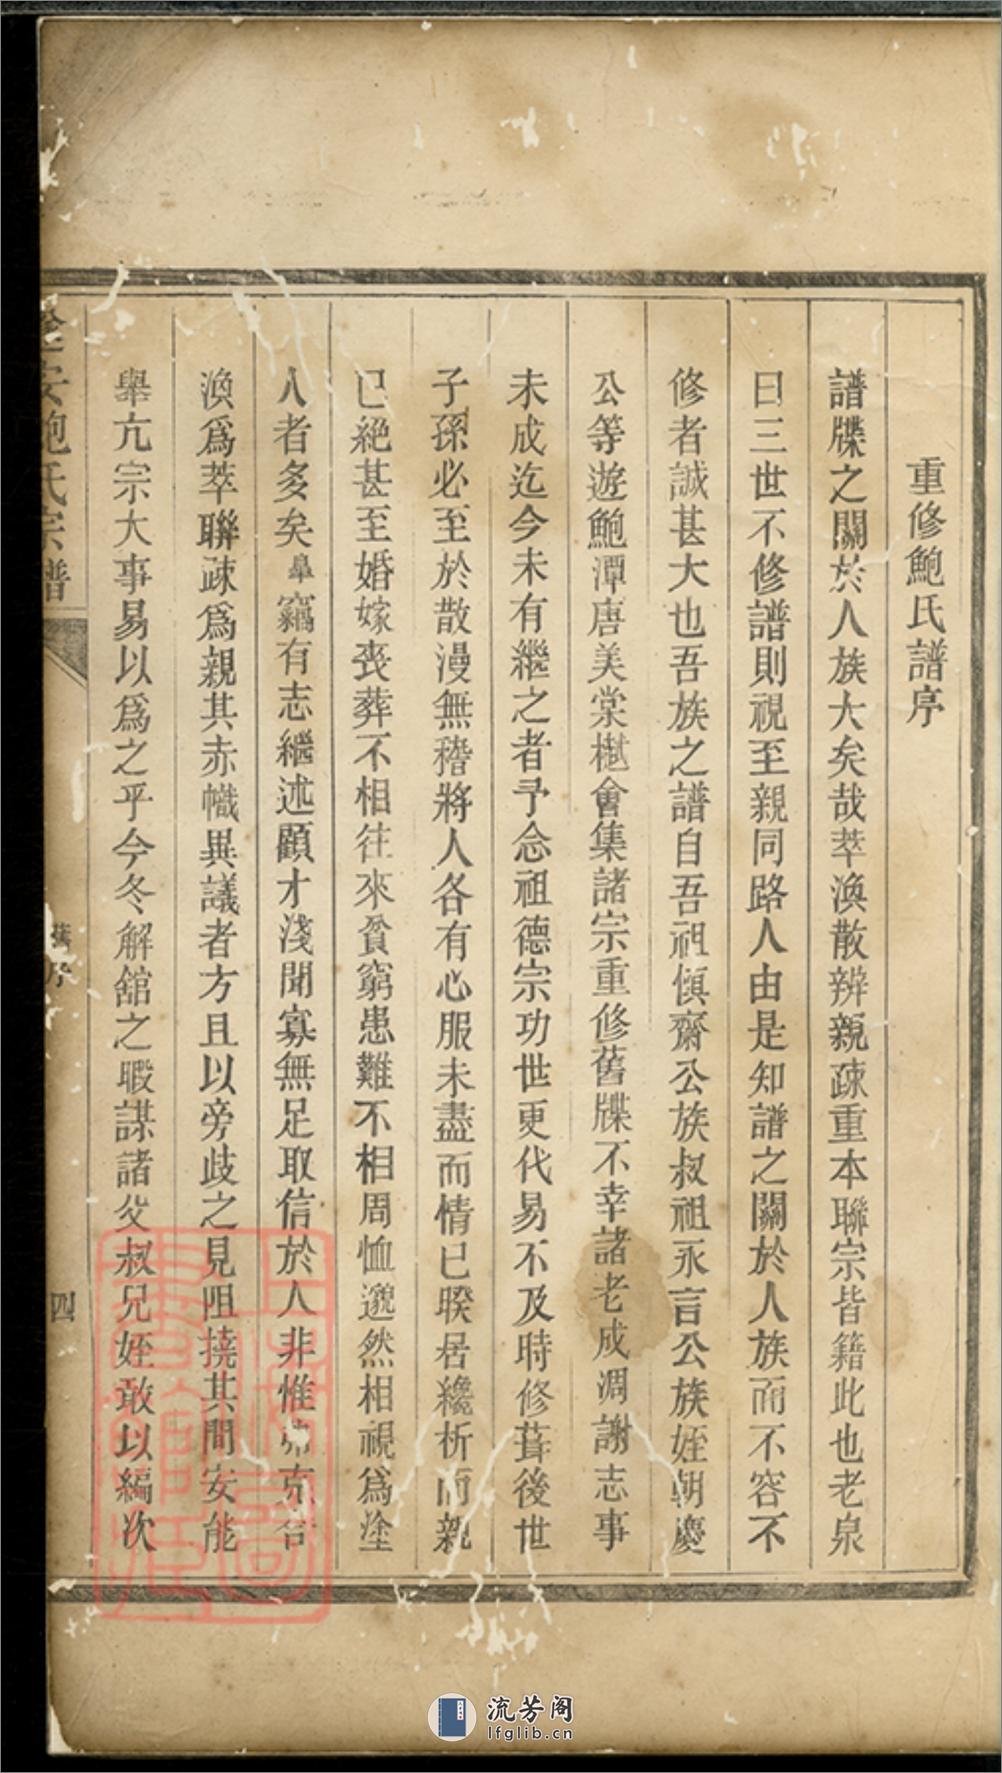 重修鮑氏譜序
譜牒之關於人族大矣哉萃渙散辨親疎重本聯宗皆籍此也老泉
曰三世不修譜則視至親同路人由是知譜之關於人族而不容不
修者誠甚大也吾族之譜自吾祖慎齋公族叔祖永言公族姪朝慶
公等遊鮑潭唐美棠樾會集諸宗重修舊牒不幸諸老成凋謝志事
未成迄今未有繼之者予念祖德宗功世更代易不及時修葺後世
子孫必至於散漫無稽將人各有心服未盡而情已睽居纔析而親
已絕甚至婚嫁喪葬不相往來貧窮患難不相周恤邈然相視爲塗
人者多矣皐竊有志繼述顧才淺聞寡無足取信於人非惟弗克合
渙爲萃聯疎爲親其赤幟異議者方且以旁歧之見咀撓其間安能
舉亢宗大事易以爲之乎今冬解舘之暇謀諸父叔兄姪敢以編次
安鮑氏宗譜
舊序
四
流芳阁
lfglib.cn